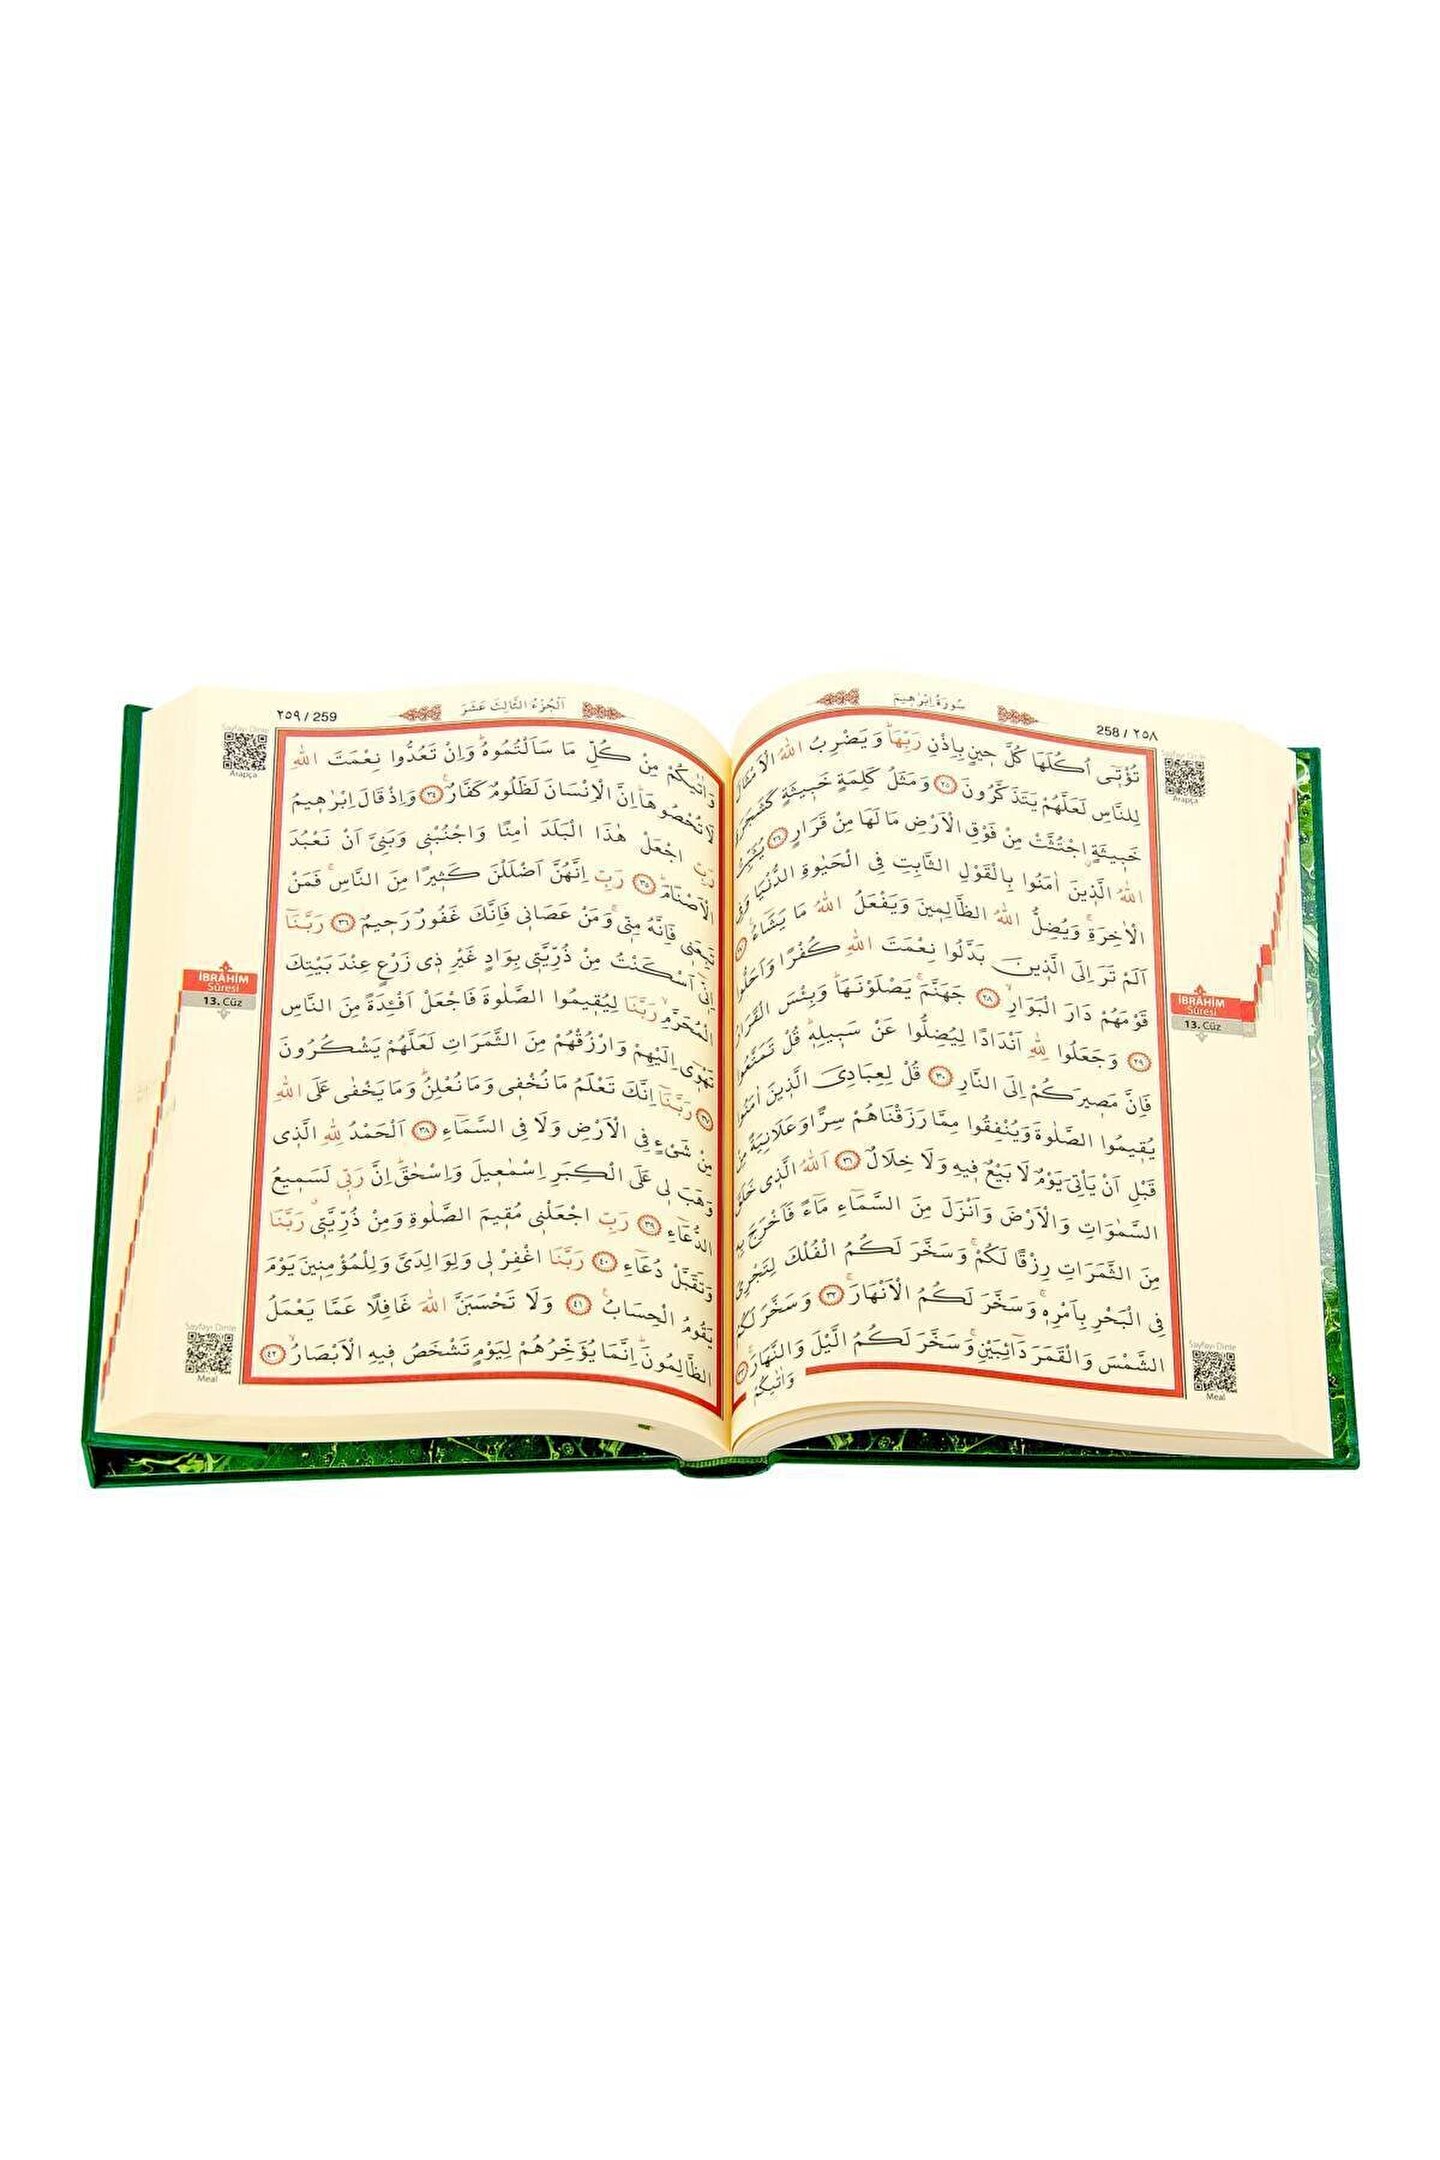 258 / ٢٥٨
سُورَةُ اِبْرٰهٖيمَ
Sayfayı Dinle
Arapça
تُؤْتٖٓى اُكُلَهَا كُلَّ حٖينٍ بِاِذْنِ رَبِّهَاؕ وَيَضْرِبُ اللّٰهُ الْاَمْثَالَ
لِلنَّاسِ لَعَلَّهُمْ يَتَذَكَّرُونَ ﴿٢٥﴾ وَمَثَلُ كَلِمَةٍ خَبٖيثَةٍ كَشَجَرَةٍ
خَبٖيثَةٍۨ اجْتُثَّتْ مِنْ فَوْقِ الْاَرْضِ مَا لَهَا مِنْ قَرَارٍ ﴿٢٦﴾ يُثَبِّتُ
اللّٰهُ الَّذٖينَ اٰمَنُوا بِالْقَوْلِ الثَّابِتِ فِى الْحَيٰوةِ الدُّنْيَا وَفِى
الْاٰخِرَةِۚ وَيُضِلُّ اللّٰهُ الظَّالِمٖينَ وَيَفْعَلُ اللّٰهُ مَا يَشَٓاءُ ﴿٢٧﴾
اَلَمْ تَرَ اِلَى الَّذٖينَ بَدَّلُوا نِعْمَتَ اللّٰهِ كُفْرًا وَاَحَلُّوا
قَوْمَهُمْ دَارَ الْبَوَارِۙ ﴿٢٨﴾ جَهَنَّمَۚ يَصْلَوْنَهَاؕ وَبِئْسَ الْقَرَارُ
﴿٢٩﴾ وَجَعَلُوا لِلّٰهِ اَنْدَادًا لِيُضِلُّوا عَنْ سَبٖيلِهٖؕ قُلْ تَمَتَّعُوا
فَاِنَّ مَصٖيرَكُمْ اِلَى النَّارِ ﴿٣٠﴾ قُلْ لِعِبَادِىَ الَّذٖينَ اٰمَنُوا
يُقٖيمُوا الصَّلٰوةَ وَيُنْفِقُوا مِمَّا رَزَقْنَاهُمْ سِرًّا وَعَلَانِيَةً مِنْ
قَبْلِ اَنْ يَأْتِىَ يَوْمٌ لَا بَيْعٌ فٖيهِ وَلَا خِلَالٌ ﴿٣١﴾ اَللّٰهُ الَّذٖى خَلَقَ
السَّمٰوَاتِ وَالْاَرْضَ وَاَنْزَلَ مِنَ السَّمَٓاءِ مَٓاءً فَاَخْرَجَ بِهٖ
مِنَ الثَّمَرَاتِ رِزْقًا لَكُمْۚ وَسَخَّرَ لَكُمُ الْفُلْكَ لِتَجْرِىَ
فِى الْبَحْرِ بِاَمْرِهٖۚ وَسَخَّرَ لَكُمُ الْاَنْهَارَۚ ﴿٣٢﴾ وَسَخَّرَ لَكُمُ
الشَّمْسَ وَالْقَمَرَ دَٓائِبَيْنِۚ وَسَخَّرَ لَكُمُ الَّيْلَ وَالنَّهَارَۚ ﴿٣٣﴾
وَاٰتٰيكُمْ
İBRÂHİM
Sûresi
13. Cüz
Sayfayı Dinle
Meal
٢٥٩ / 259
اَلْجُزْءُ الثَّالِثَ عَشَرَ
Sayfayı Dinle
Arapça
وَاٰتٰيكُمْ مِنْ كُلِّ مَا سَاَلْتُمُوهُؕ وَاِنْ تَعُدُّوا نِعْمَتَ اللّٰهِ
لَا تُحْصُوهَاؕ اِنَّ الْاِنْسَانَ لَظَلُومٌ كَفَّارٌ۟ ﴿٣٤﴾ وَاِذْ قَالَ اِبْرٰهٖيمُ
رَبِّ اجْعَلْ هٰذَا الْبَلَدَ اٰمِنًا وَاجْنُبْنٖى وَبَنِىَّ اَنْ نَعْبُدَ
الْاَصْنَامَؕ ﴿٣٥﴾ رَبِّ اِنَّهُنَّ اَضْلَلْنَ كَثٖيرًا مِنَ النَّاسِۚ فَمَنْ
تَبِعَنٖى فَاِنَّهُ مِنّٖىۚ وَمَنْ عَصَانٖى فَاِنَّكَ غَفُورٌ رَحٖيمٌ ﴿٣٦﴾ رَبَّنَٓا
اِنّٖٓى اَسْكَنْتُ مِنْ ذُرِّيَّتٖى بِوَادٍ غَيْرِ ذٖى زَرْعٍ عِنْدَ بَيْتِكَ
الْمُحَرَّمِۙ رَبَّنَا لِيُقٖيمُوا الصَّلٰوةَ فَاجْعَلْ اَفْـِٔدَةً مِنَ النَّاسِ
تَهْوٖٓى اِلَيْهِمْ وَارْزُقْهُمْ مِنَ الثَّمَرَاتِ لَعَلَّهُمْ يَشْكُرُونَ
﴿٣٧﴾ رَبَّنَٓا اِنَّكَ تَعْلَمُ مَا نُخْفٖى وَمَا نُعْلِنُؕ وَمَا يَخْفٰى عَلَى اللّٰهِ
مِنْ شَىْءٍ فِى الْاَرْضِ وَلَا فِى السَّمَٓاءِ ﴿٣٨﴾ اَلْحَمْدُ لِلّٰهِ الَّذٖى
وَهَبَ لٖى عَلَى الْكِبَرِ اِسْمٰعٖيلَ وَاِسْحٰقَؕ اِنَّ رَبّٖى لَسَمٖيعُ
الدُّعَٓاءِ ﴿٣٩﴾ رَبِّ اجْعَلْنٖى مُقٖيمَ الصَّلٰوةِ وَمِنْ ذُرِّيَّتٖىۗ رَبَّنَا
وَتَقَبَّلْ دُعَٓاءِ ﴿٤٠﴾ رَبَّنَا اغْفِرْ لٖى وَلِوَالِدَىَّ وَلِلْمُؤْمِنٖينَ يَوْمَ
يَقُومُ الْحِسَابُ۟ ﴿٤١﴾ وَلَا تَحْسَبَنَّ اللّٰهَ غَافِلًا عَمَّا يَعْمَلُ
الظَّالِمُونَؕ اِنَّمَا يُؤَخِّرُهُمْ لِيَوْمٍ تَشْخَصُ فٖيهِ الْاَبْصَارُۙ ﴿٤٢﴾
İBRÂHİM
Sûresi
13. Cüz
Sayfayı Dinle
Meal